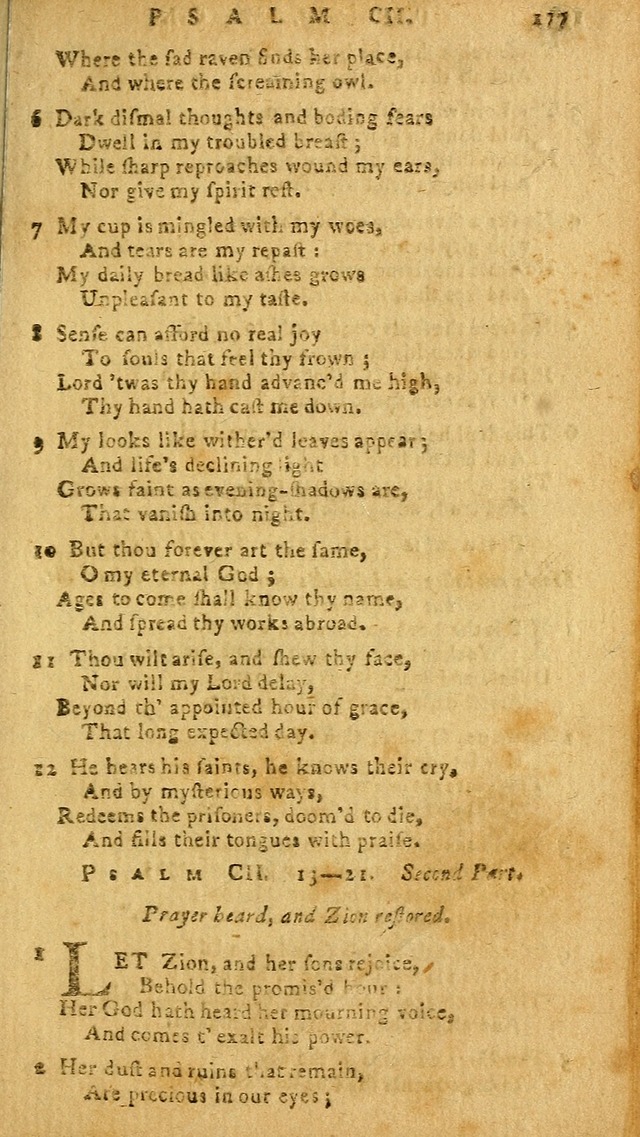 PSALM CII. 177
Where the ſad raven finds her place,
And where the ſcreaming owl.
6 Dark diſmal thoughts and boding fears
Dwell in my troubled breaſt ;
While ſharp reproaches wound my ears,
Nor give my ſpirit reſt.
7 My cup is mingled with my woes,
And tears are my repaſt :
My daily bread like aſhes grows
Unpleaſant to my taſte.
8 Senſe can afford no real joy
To ſouls that feel thy frown ;
Lord 'twas thy hand advanc'd me high,
Thy hand hath caſt me down.
9 My looks like wither'd leaves appear ;
And life's declining light
Grows faint as evening-ſhadows are,
That vaniſh into night.
10 But thou forever art the ſame,
O my eternal God ;
Ages to come ſhall know thy name,
And ſpread thy works abroad.
11 Thou wilt ariſe, and ſhew thy face,
Nor will my Lord delay,
Beyond th' appointed hour of grace,
That long expected day.
12 He hears his ſaints, he knows their cry,
And by myſterious ways,
Redeems the priſoners, doom'd to die,
And fills their tongues with praiſe.
PSALM CII. 13—21. Second Part.
Prayer heard, and Zion reſtored.
1 LET Zion, and her ſons rejoice,
Behold the promis'd hour :
Her God hath heard her mourning voice,
And comes t' exalt his power.
2 Her duſt and ruins that remain,
Are precious in our eyes ;